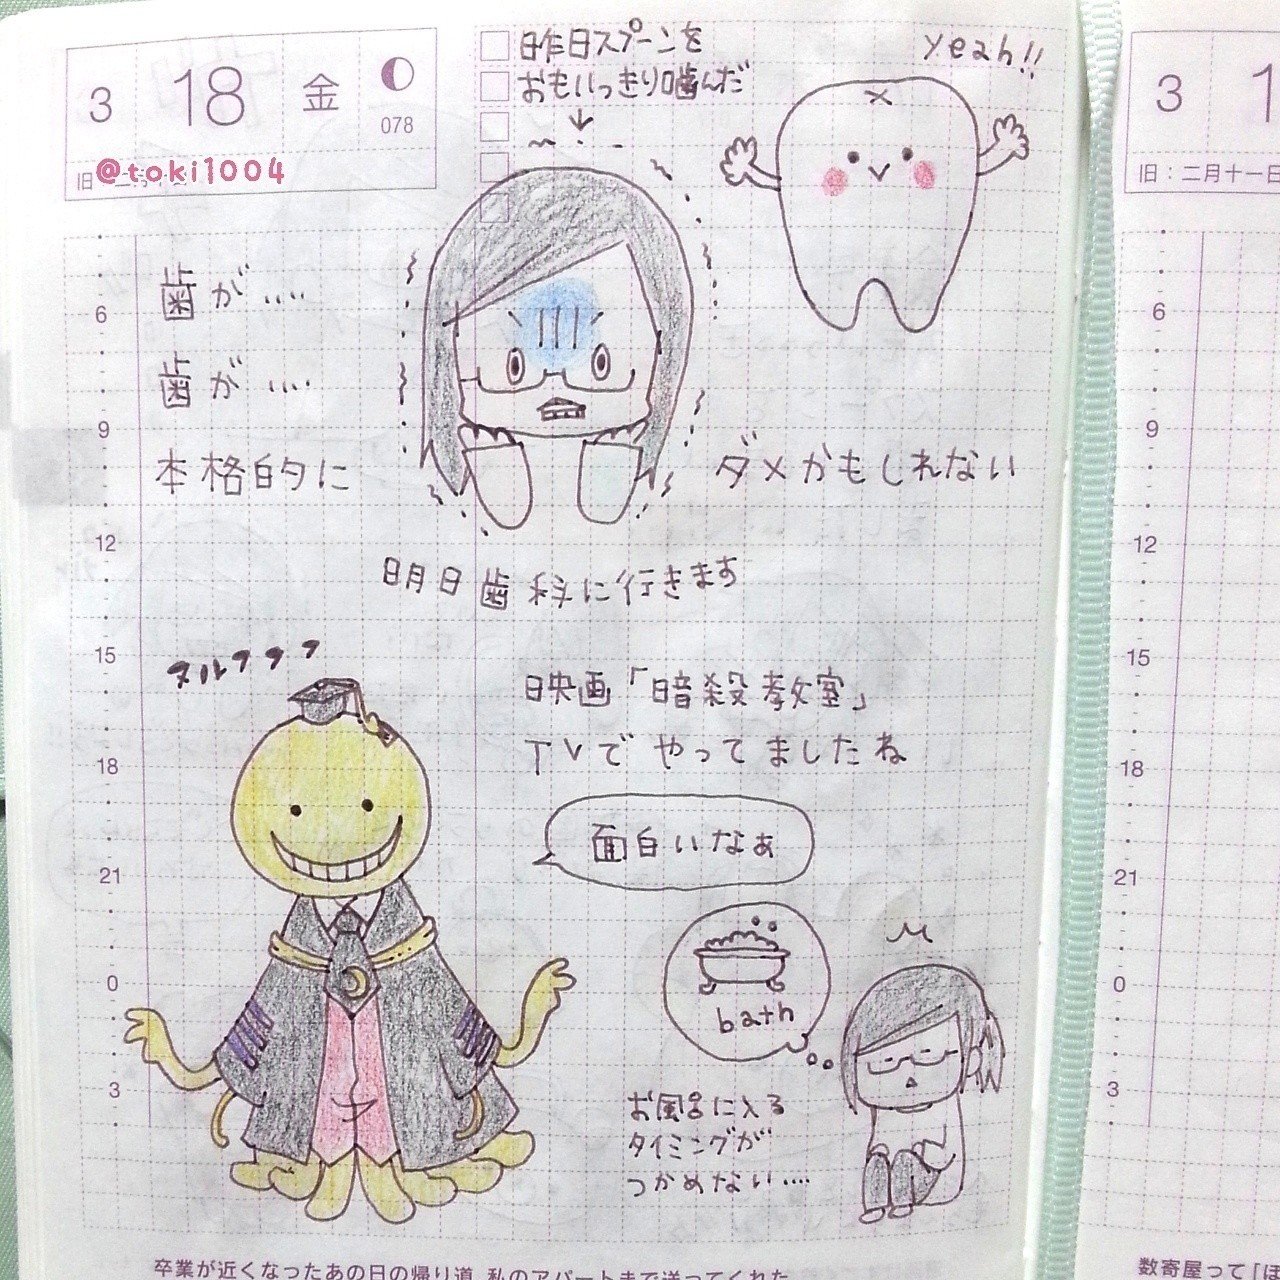 3 18 金
078
@toki1004
昨日スプーンを
おもいっきり噛んだ
↓
yeah!!
歯が....
歯が....
本格的に
ダメかもしれない
明日歯科に行きます
ヌルフフフ
映画「暗殺教室」
TVでやってましたね
面白いなぁ
bath
お風呂に入る
タイミングが
つかめない....
6
9
12
15
18
21
0
3
卒業が近くなったあの日の帰り道、私のアパートまで送ってくれた
3 1
旧：二月十一日
6
9
12
15
18
21
0
3
数寄屋って「ほ